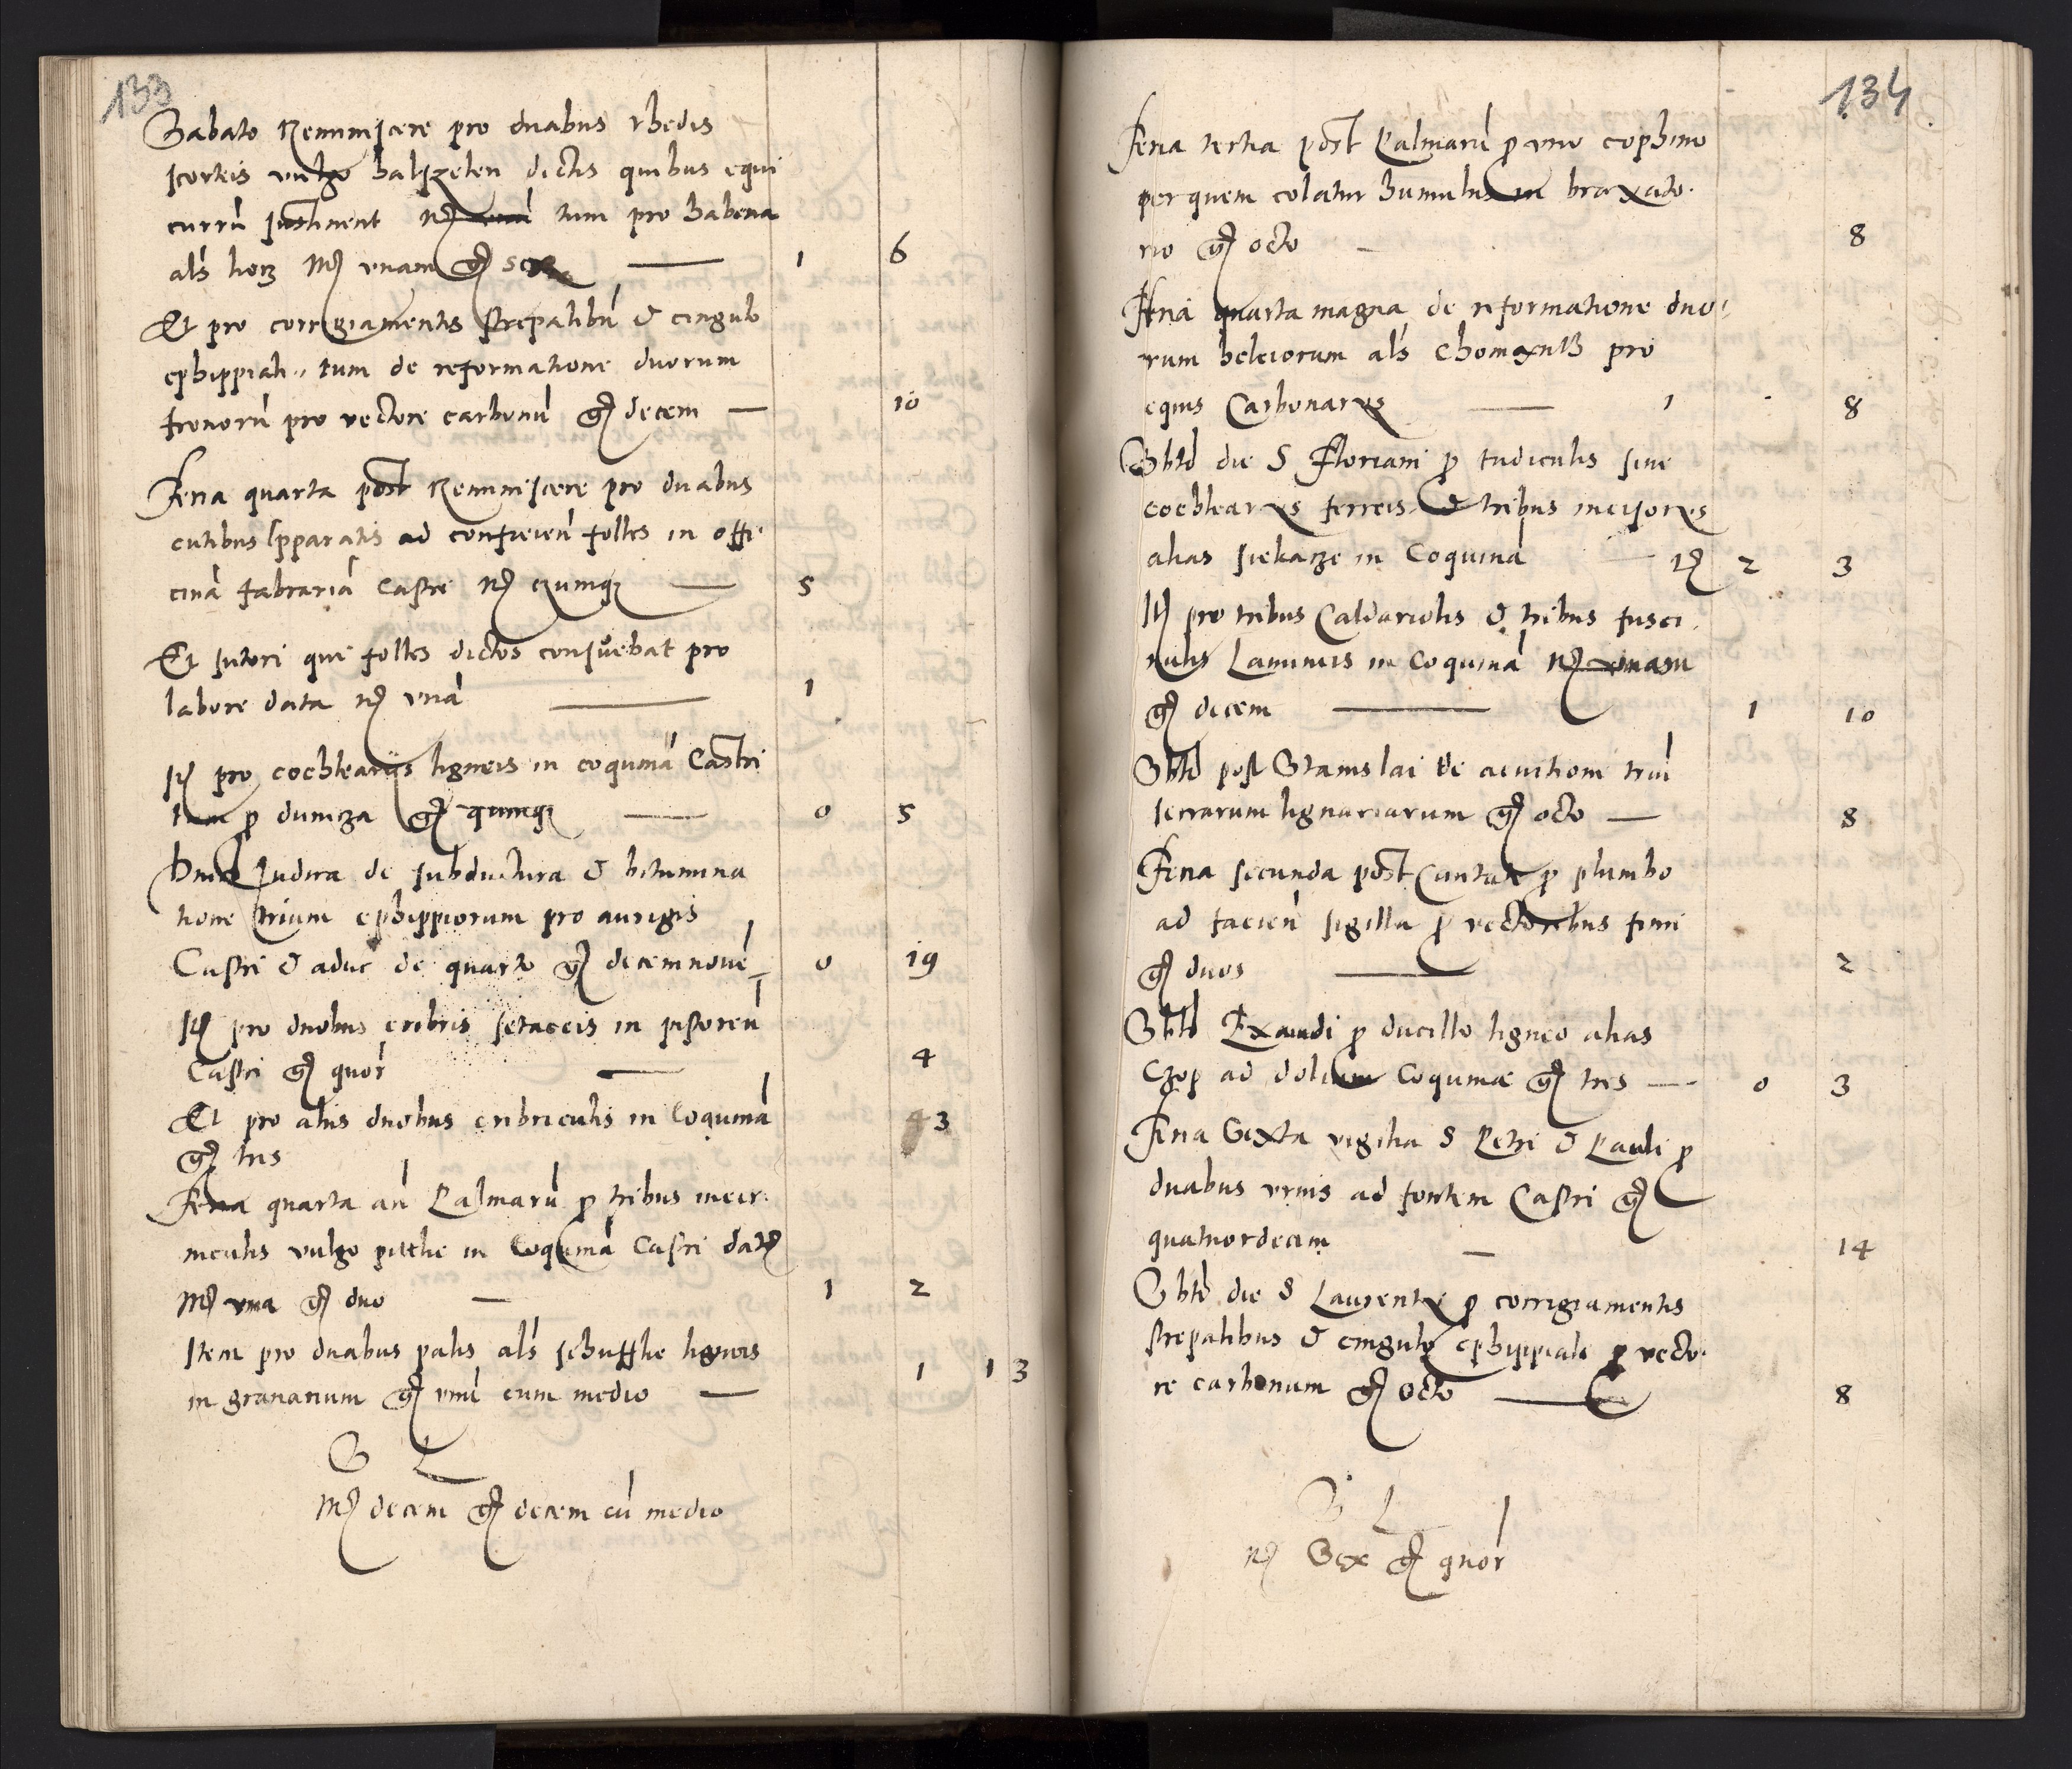 133
Sabato Reminiscere pro duabus rhedis
scorteis vulgo halszelen dictis quibus equi
currū sustinent tum pro habena
als horz Mʒ vnam gʒ sex — 1 6
Et pro corrigiamentis strepalibū & cingulo
ephippiali tum de reformatione duorum
frenorū pro vectore carbonū gʒ decem — 10
Feria quarta post Reminiscere pro duabus
cutibus apparatis ad conficien̄ folles in offi
cinā fabrariā Castri Mʒ qumqʒ — 5
Et sutori qui folles dictos consuebat pro
labore data Mʒ vnā — 1
Itʒ pro cochleariis ligneis in coquinā Castri
tum ꝑ dunicza gʒ quinqʒ — 0 5
Judica de subductura & bitumina
tione trium ephippiorum pro aurigis
Castri & aduc de quarto gʒ decemnouē — 0 19
Itʒ pro duobus cribris setaceis in pistoreū
Castri gʒ quor — 4
Et pro aliis duobus cribriculis in Coquinā
gʒ tris 3
Feria quarta an̄ Palmarū ꝑ tribus incir
niculis vulgo pitthe in Coquinā Castri datʒ
Mʒ vna gʒ duo — 1 2
Item pro duabus palis als schuffhe ligneis
in granarium gʒ vnū cum medio — 1 1 3
S L
Mʒ decem gʒ decem cū medio
134
Feria tertia post Palmarū ꝑ vno cophino
per quem colatur humulus in braxato
rio gʒ octo — 8
Feria quarta magna de reformatione duo
rum helciorum als Chomonth pro
equis Carbonariis — 1 8
Sbtō die S Floriani ꝑ tudiculis siue
cochleariis ferreis & tribus incisoriis
alias siekacze in Coquinā — Mʒ 2 3
Itʒ pro tribus Caldariolis & tribus fusci
nulis Lamineis in Coquinā Mʒ vnam
gʒ decem — 1 10
Sbtō post Stanislai de acuitione triū
serrarum lignariarum gʒ octo — 8
Feria secunda post Cantate ꝑ plumbo
ad facien̄ sigilla ꝑ vectoribus fimi
gʒ duos — 2
Sbtō Exaudi ꝑ ducillo ligneo alias
Czop ad dolium Coquinae gʒ tres — 0 3
Feria Sexta vigilia S Petri & Pauli ꝑ
duabus vrnis ad fontem Castri gʒ
quatuordecim — 14
Sbtō die S Laurentii ꝑ corrigiamentis
strepalibus & cingulo ephippiali ꝑ vecto
re carbonum gʒ octo — 8
S L
Mʒ Sex gʒ quor